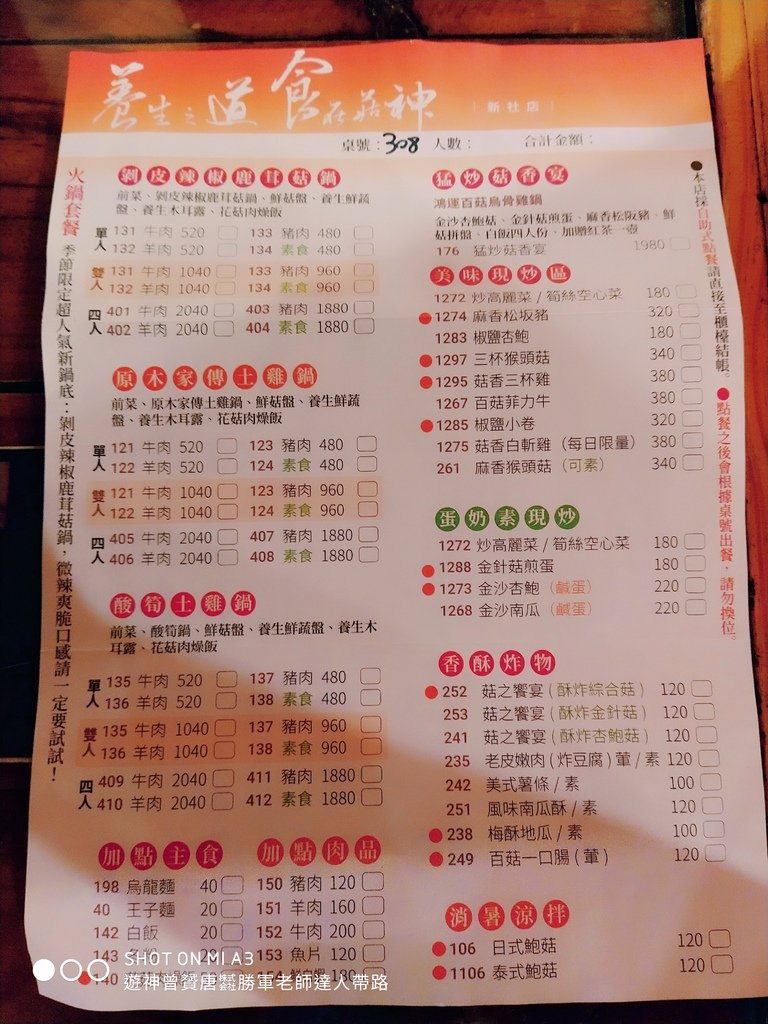 養生之道 食在菇神 新社店
桌號：308 人數： 合計金額：
火鍋套餐 季節限定超人氣新鍋底：剝皮辣椒鹿茸菇鍋，微辣爽脆口感請一定要試試！
剝皮辣椒鹿茸菇鍋
前菜、剝皮辣椒鹿茸菇鍋、鮮菇盤、養生鮮蔬
盤、養生木耳露、花菇肉燥飯
單人
131 牛肉 520 133 豬肉 480
132 羊肉 520 134 素食 480
雙人
131 牛肉 1040 133 豬肉 960
132 羊肉 1040 134 素食 960
四人
401 牛肉 2040 403 豬肉 1880
402 羊肉 2040 404 素食 1880
原木家傳土雞鍋
前菜、原木家傳土雞鍋、鮮菇盤、養生鮮蔬
盤、養生木耳露、花菇肉燥飯
單人
121 牛肉 520 123 豬肉 480
122 羊肉 520 124 素食 480
雙人
121 牛肉 1040 123 豬肉 960
122 羊肉 1040 124 素食 960
四人
405 牛肉 2040 407 豬肉 1880
406 羊肉 2040 408 素食 1880
酸筍土雞鍋
前菜、酸筍鍋、鮮菇盤、養生鮮蔬盤、養生木
耳露、花菇肉燥飯
單人
135 牛肉 520 137 豬肉 480
136 羊肉 520 138 素食 480
雙人
135 牛肉 1040 137 豬肉 960
136 羊肉 1040 138 素食 960
四人
409 牛肉 2040 411 豬肉 1880
410 羊肉 2040 412 素食 1880
加點主食
198 烏龍麵 40
40 王子麵 20
142 白飯 20
143
140
加點肉品
150 豬肉 120
151 羊肉 160
152 牛肉 200
153 魚片 120
猛炒菇香宴
鴻運百菇烏骨雞鍋
金沙杏鮑菇、金針菇煎蛋、麻香松阪豬、鮮
菇拼盤、白飯四人份、加贈紅茶一壺
176 猛炒菇香宴 1980
美味現炒區
1272 炒高麗菜 / 筍絲空心菜 180
1274 麻香松坂豬 320
1283 椒鹽杏鮑 180
1297 三杯猴頭菇 340
1295 菇香三杯雞 380
1267 百菇菲力牛 380
1285 椒鹽小卷 320
1275 菇香白斬雞（每日限量） 380
261 麻香猴頭菇（可素） 340
蛋奶素現炒
1272 炒高麗菜 / 筍絲空心菜 180
1288 金針菇煎蛋 180
1273 金沙杏鮑（鹹蛋） 220
1268 金沙南瓜（鹹蛋） 220
香酥炸物
252 菇之饗宴 ( 酥炸綜合菇 ) 120
253 菇之饗宴 ( 酥炸金針菇 ) 120
241 菇之饗宴 ( 酥炸杏鮑菇 ) 120
235 老皮嫩肉 ( 炸豆腐 ) 葷 / 素 120
242 美式薯條 / 素 100
251 風味南瓜酥 / 素 120
238 梅酥地瓜 / 素 100
249 百菇一口腸 ( 葷 ) 120
消暑涼拌
106 日式鮑菇 120
1106 泰式鮑菇 120
●本店採自助式點餐請直接至櫃檯結帳。
●點餐之後會根據桌號出餐，請勿換位。
SHOT ON MI A3